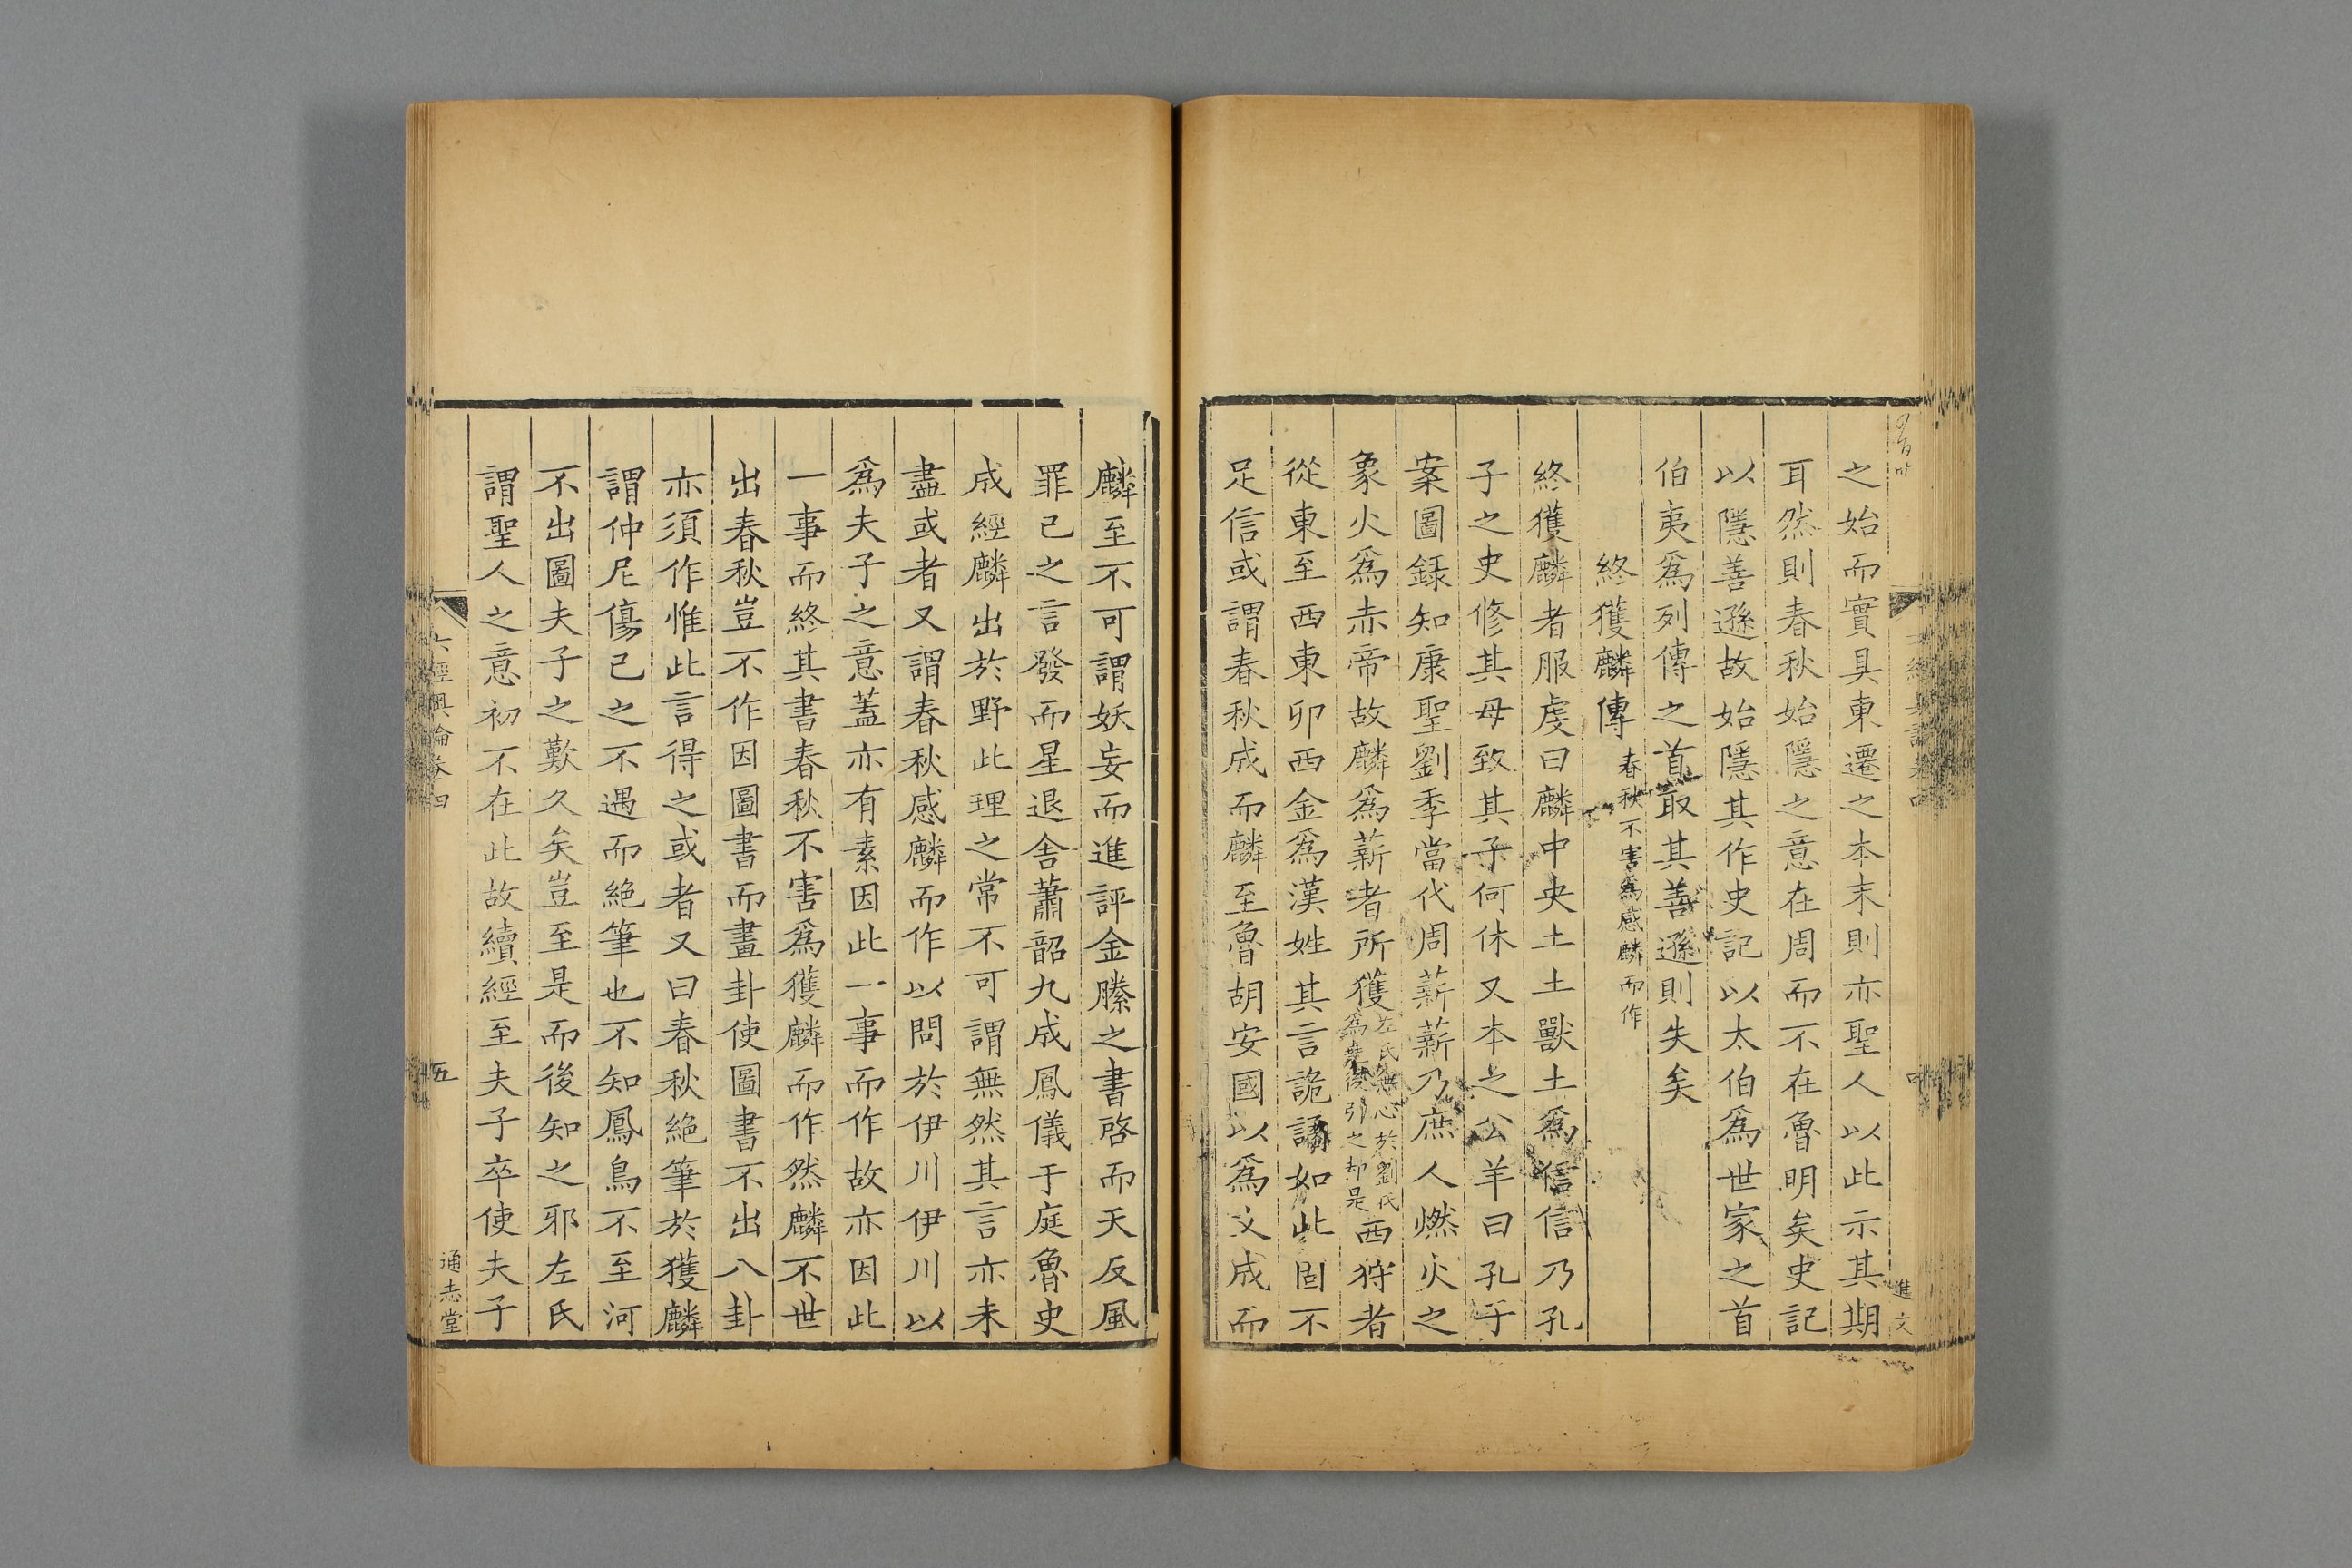 之始而實具東遷之本末則亦聖人以此示其期
耳然則春秋始隱之意在周而不在魯明矣史記
以隱善遜故始隱其作史記以太伯爲世家之首
伯夷爲列傳之首取其善遜則失矣
終獲麟傳春秋不害爲感麟而作
終獲麟者服虔曰麟中央土土獸土爲信信乃孔
子之史修其母致其子何休又本之公羊曰孔子
案圖録知康聖劉季當代周薪薪乃庶人燃火之
象火爲赤帝故麟爲薪者所獲左氏無心於劉氏爲堯後引之却是西狩者
從東至西東卯西金爲漢姓其言詭譎如此固不
足信或謂春秋成而麟至魯胡安國以爲文成而
進文
麟至不可謂妖妄而進評金縢之書啓而天反風
罪已之言發而星退舍蕭韶九成鳳儀于庭魯史
成經麟出於野此理之常不可謂無然其言亦未
盡或者又謂春秋感麟而作以問於伊川伊川以
爲夫子之意蓋亦有素因此一事而作故亦因此
一事而終其書春秋不害爲獲麟而作然麟不世
出春秋豈不作因圖書而畫卦使圖書不出八卦
亦須作惟此言得之或者又曰春秋絶筆於獲麟
謂仲尼傷已之不遇而絶筆也不知鳳鳥不至河
不出圖夫子之歎久矣豈至是而後知之邪左氏
謂聖人之意初不在此故續經至夫子卒使夫子
六經奧論卷四
五
通志堂